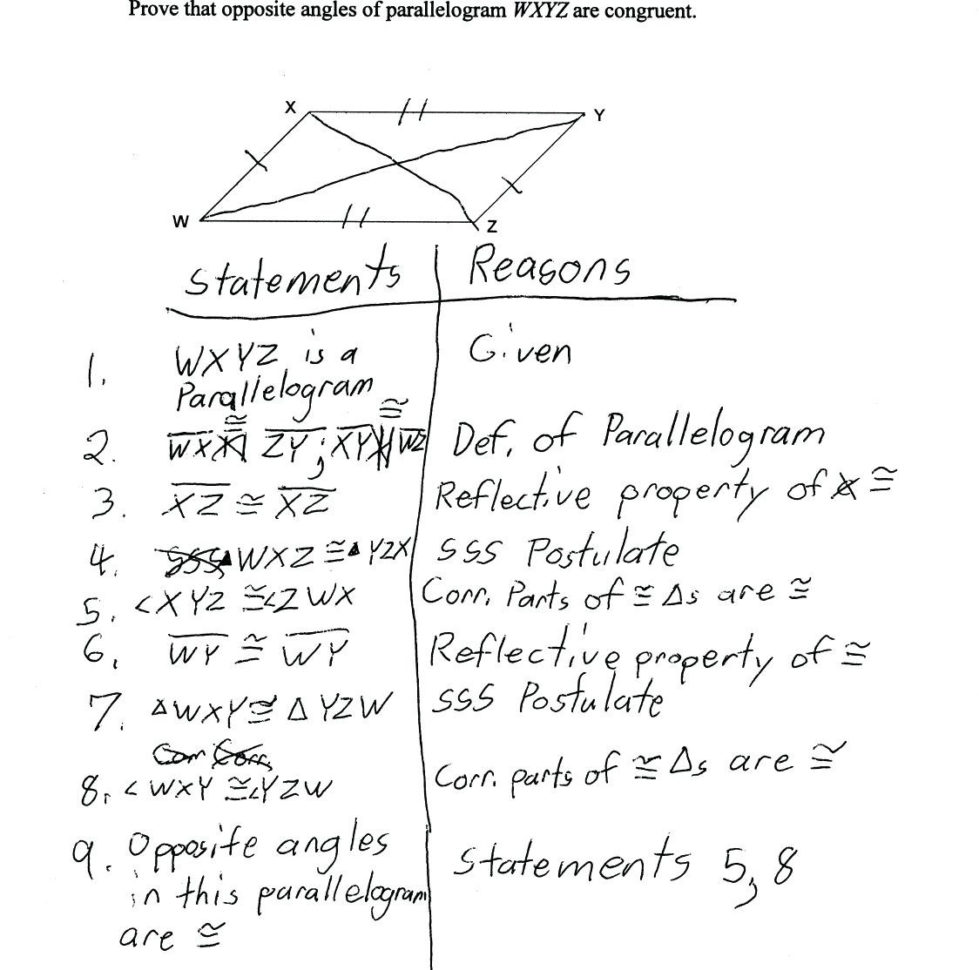 Prove that opposite angles of parallelogram WXYZ are congruent.
X Y
W Z
Statements Reasons
1. WXYZ is a Given
Parallelogram
2. WX ≅ ZY; XY ≅ WZ Def. of Parallelogram
3. XZ ≅ XZ Reflective property of ≅
4. ▲WXZ ≅ ▲YZX SSS Postulate
5. <XYZ ≅ <ZWX Corr. Parts of ≅ Δs are ≅
6. WY ≅ WY Reflective property of ≅
7. ΔWXY ≅ ΔYZW SSS Postulate
8. <WXY ≅ <YZW Corr. parts of ≅ Δs are ≅
9. Opposite angles Statements 5, 8
in this parallelogram
are ≅